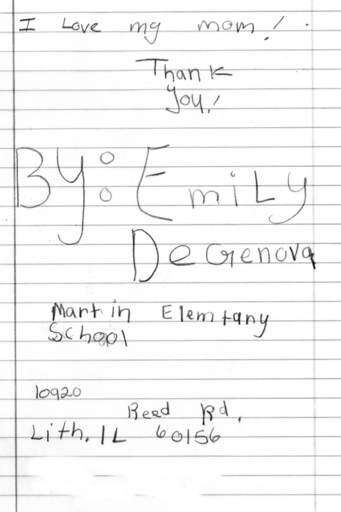 I Love my mom!
Thank
You!
BY: EmiLy
DeGenova
Martin Elemtany
School
10920
Reed Rd.
Lith, IL 60156